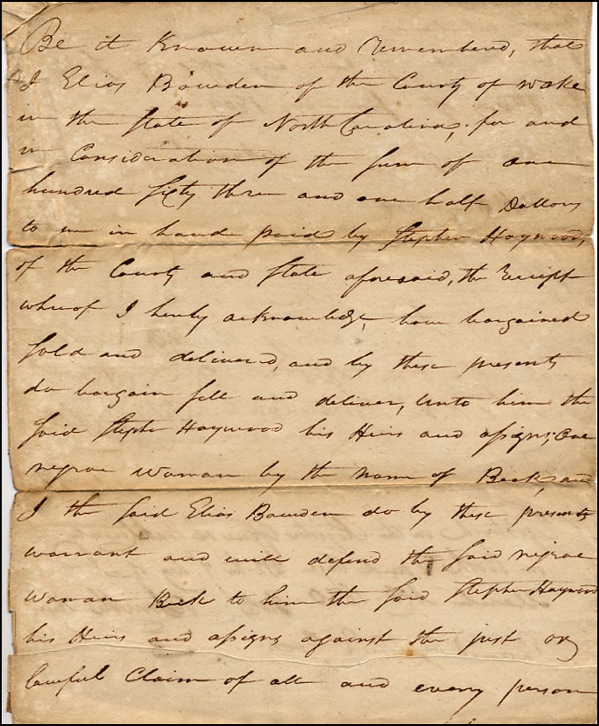 Be it Known and Remembered, that
I Elias Bowden of the County of Wake
in the State of North Carolina, for and
in Consideration of the Sum of one
hundred Sixty three and one half Dollars
to me in hand paid by Stephen Haywood,
of the County and State aforesaid, the Receipt
whereof I hereby acknowledge, have bargained
Sold and delivered, and by these presents
do bargain Sell and deliver, unto him the
Said Stephen Haywood his Heirs and assigns, One
negroe woman by the name of Beck, and
I the Said Elias Bowden do by these presents
warrant and will defend the Said negroe
woman Beck to him the Said Stephen Haywood
his Heirs and assigns against the just or
lawful Claim of all and every person